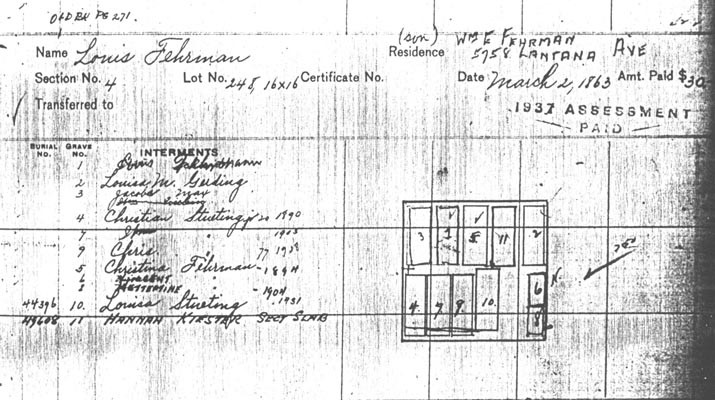 Old Bk Pg 271.
Name Louis Fehrman
(son)
Residence Wm E Fehrman
5958 Lantana Ave
Section No. 4 Lot No. 248, 16x16 Certificate No. Date March 2, 1863 Amt. Paid $30
Transferred to
1937 ASSESSMENT
PAID
BURIAL NO. GRAVE NO. INTERMENTS
1 Louis
2 Louisa M. Gerding
3 Jacob
4 Christian Stueting 20 1890
7 " 1903
9 Chris. " 77 1938
5 Christina Fehrman - 1894
6 Vincent "
8 " - 1904
44396 10. Louisa Stueting . 1931
49608 11 Hannah Kiester Sect Slab
3 1 5 11 2
4 7 9. 10. 6
8
N.